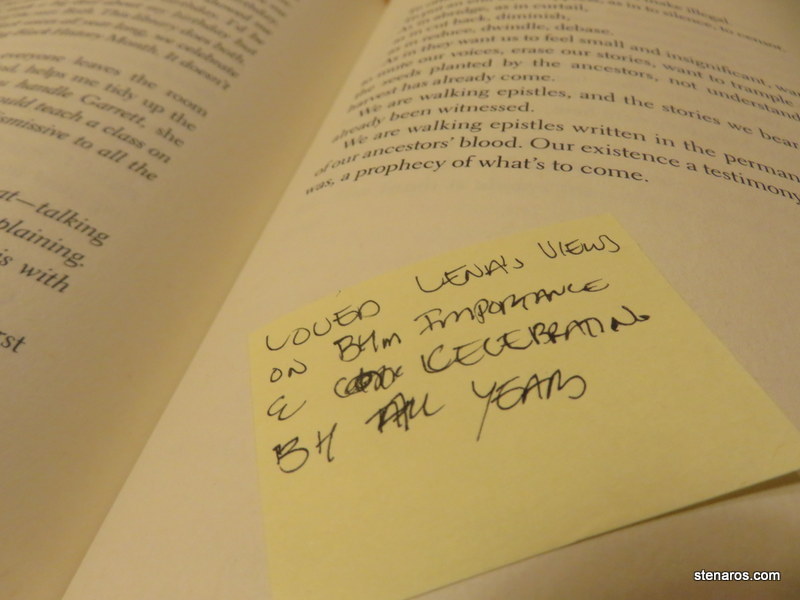 everyone leaves the room
helps me tidy up the
handle Garrett, she
ould teach a class on
smissive to all the
at—talking
plaining.
s with
rst
make illegal.
as in to silence, to cannot.
As in abridge, as in curtail.
As in cut back, diminish,
as in reduce, dwindle, debase.
As in they want us to feel small and insignificant, wa
to mute our voices, erase our stories, want to trample
the seeds planted by the ancestors, not understand
harvest has already come.
We are walking epistles, and the stories we bear
already been witnessed.
We are walking epistles written in the perman
of our ancestors' blood. Our existence a testimony
was, a prophecy of what's to come.
LOVED LENA'S VIEWS
ON BHM IMPORTANCE
& CELEBRATING
BH ALL YEARS
stenaros.com